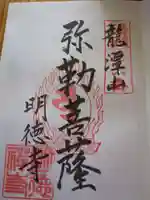 龍澤山
弥勒菩薩
明徳寺